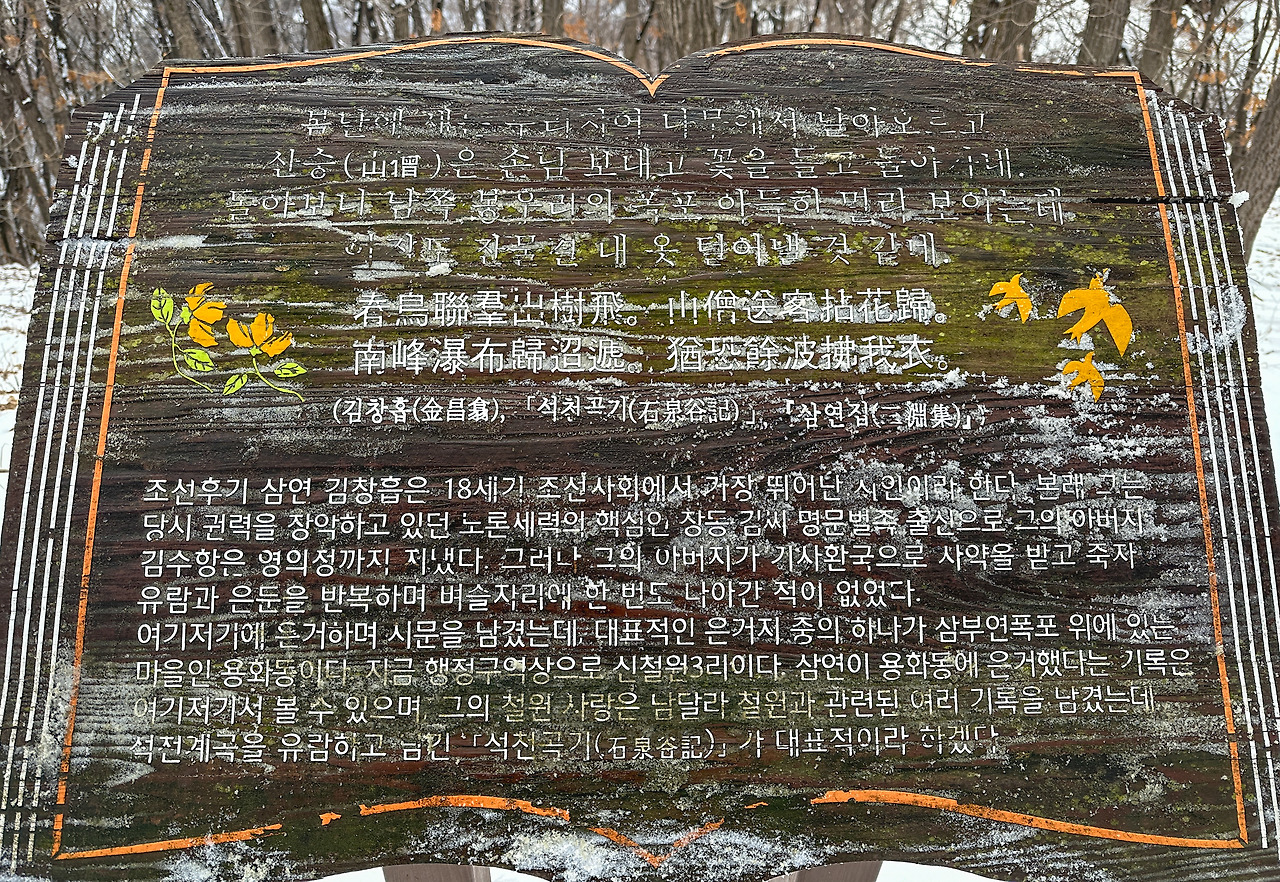 봄날에 새는 무리지어 나무에서 날아오르고
산승(山僧)은 손님 보내고 꽃을 들고 돌아가네.
돌아보니 남쪽 봉우리의 폭포 아득히 멀리 보이는데
아직도 잔물결 내 옷 털어낼 것 같네
春鳥聯羣出樹飛。 山僧送客拈花歸。
南峰瀑布歸迢遞。 猶恐餘波拂我衣。
(김창흡(金昌翕), 「석천곡기(石泉谷記)」, 『삼연집(三淵集)』,
조선후기 삼연 김창흡은 18세기 조선사회에서 가장 뛰어난 시인이라 한다. 본래 그는
당시 권력을 장악하고 있던 노론세력의 핵심인 장동 김씨 명문벌족 출신으로 그의 아버지
김수항은 영의정까지 지냈다. 그러나 그의 아버지가 기사환국으로 사약을 받고 죽자
유람과 은둔을 반복하며 벼슬자리에 한 번도 나아간 적이 없었다.
여기저기에 은거하며 시문을 남겼는데, 대표적인 은거지 중의 하나가 삼부연폭포 위에 있는
마을인 용화동이다. 지금 행정구역상으로 신철원3리이다. 삼연이 용화동에 은거했다는 기록은
여기저기서 볼 수 있으며, 그의 철원 사랑은 남달라 철원과 관련된 여러 기록을 남겼는데
석천계곡을 유람하고 남긴 「석천곡기(石泉谷記)」가 대표적이라 하겠다.